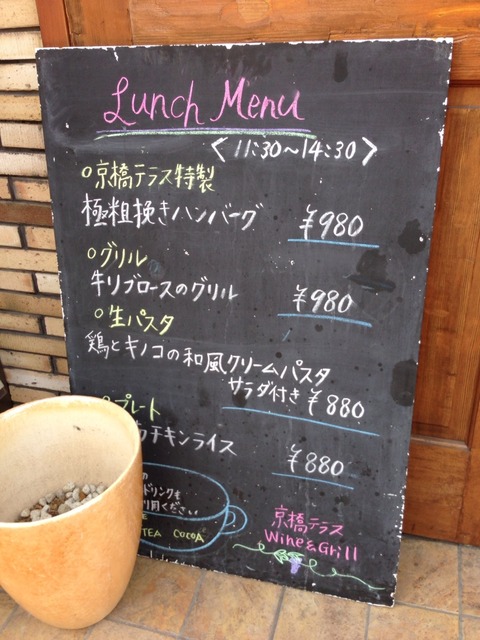 Lunch Menu
<11:30~14:30>
○京橋テラス特製
極粗挽きハンバーグ ¥980
○グリル
牛リブロースのグリル ¥980
○生パスタ
鶏とキノコの和風クリームパスタ
サラダ付き ¥880
プレート
チキンライス ¥880
ドリンクも
利用ください
TEA COCOA
京橋テラス
Wine&Grill